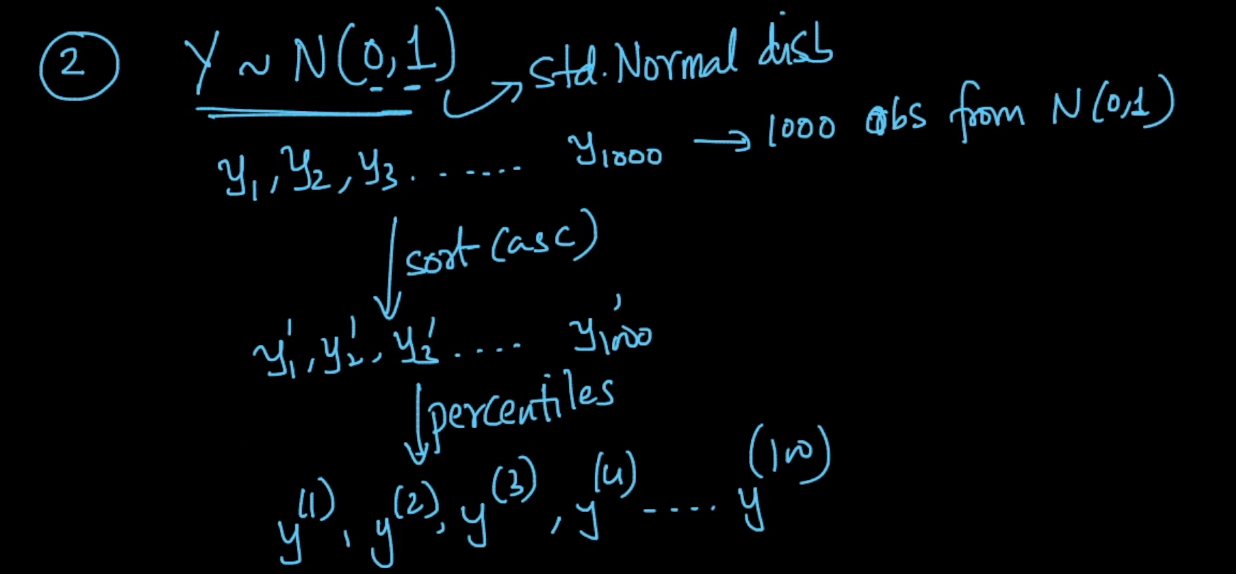 ② Y ~ N(0,1) → Std. Normal dist
y₁, y₂, y₃ ....... y₁₀₀₀ → 1000 obs from N(0,1)
↓ sort (asc)
y₁', y₂', y₃' .... y₁₀₀₀'
↓ percentiles
y⁽¹⁾, y⁽²⁾, y⁽³⁾, y⁽⁴⁾ ---- y⁽¹⁰⁰⁾